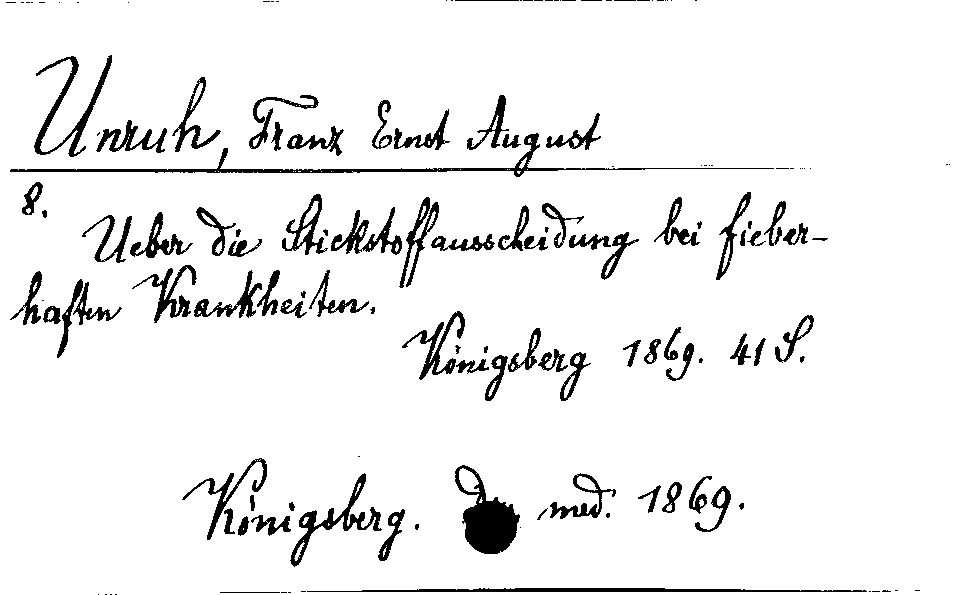 Unruh, Franz Ernst August
8.
Ueber die Stickstoffausscheidung bei fieber-
haften Krankheiten.
Königsberg 1869. 41 S.
Königsberg. med. 1869.